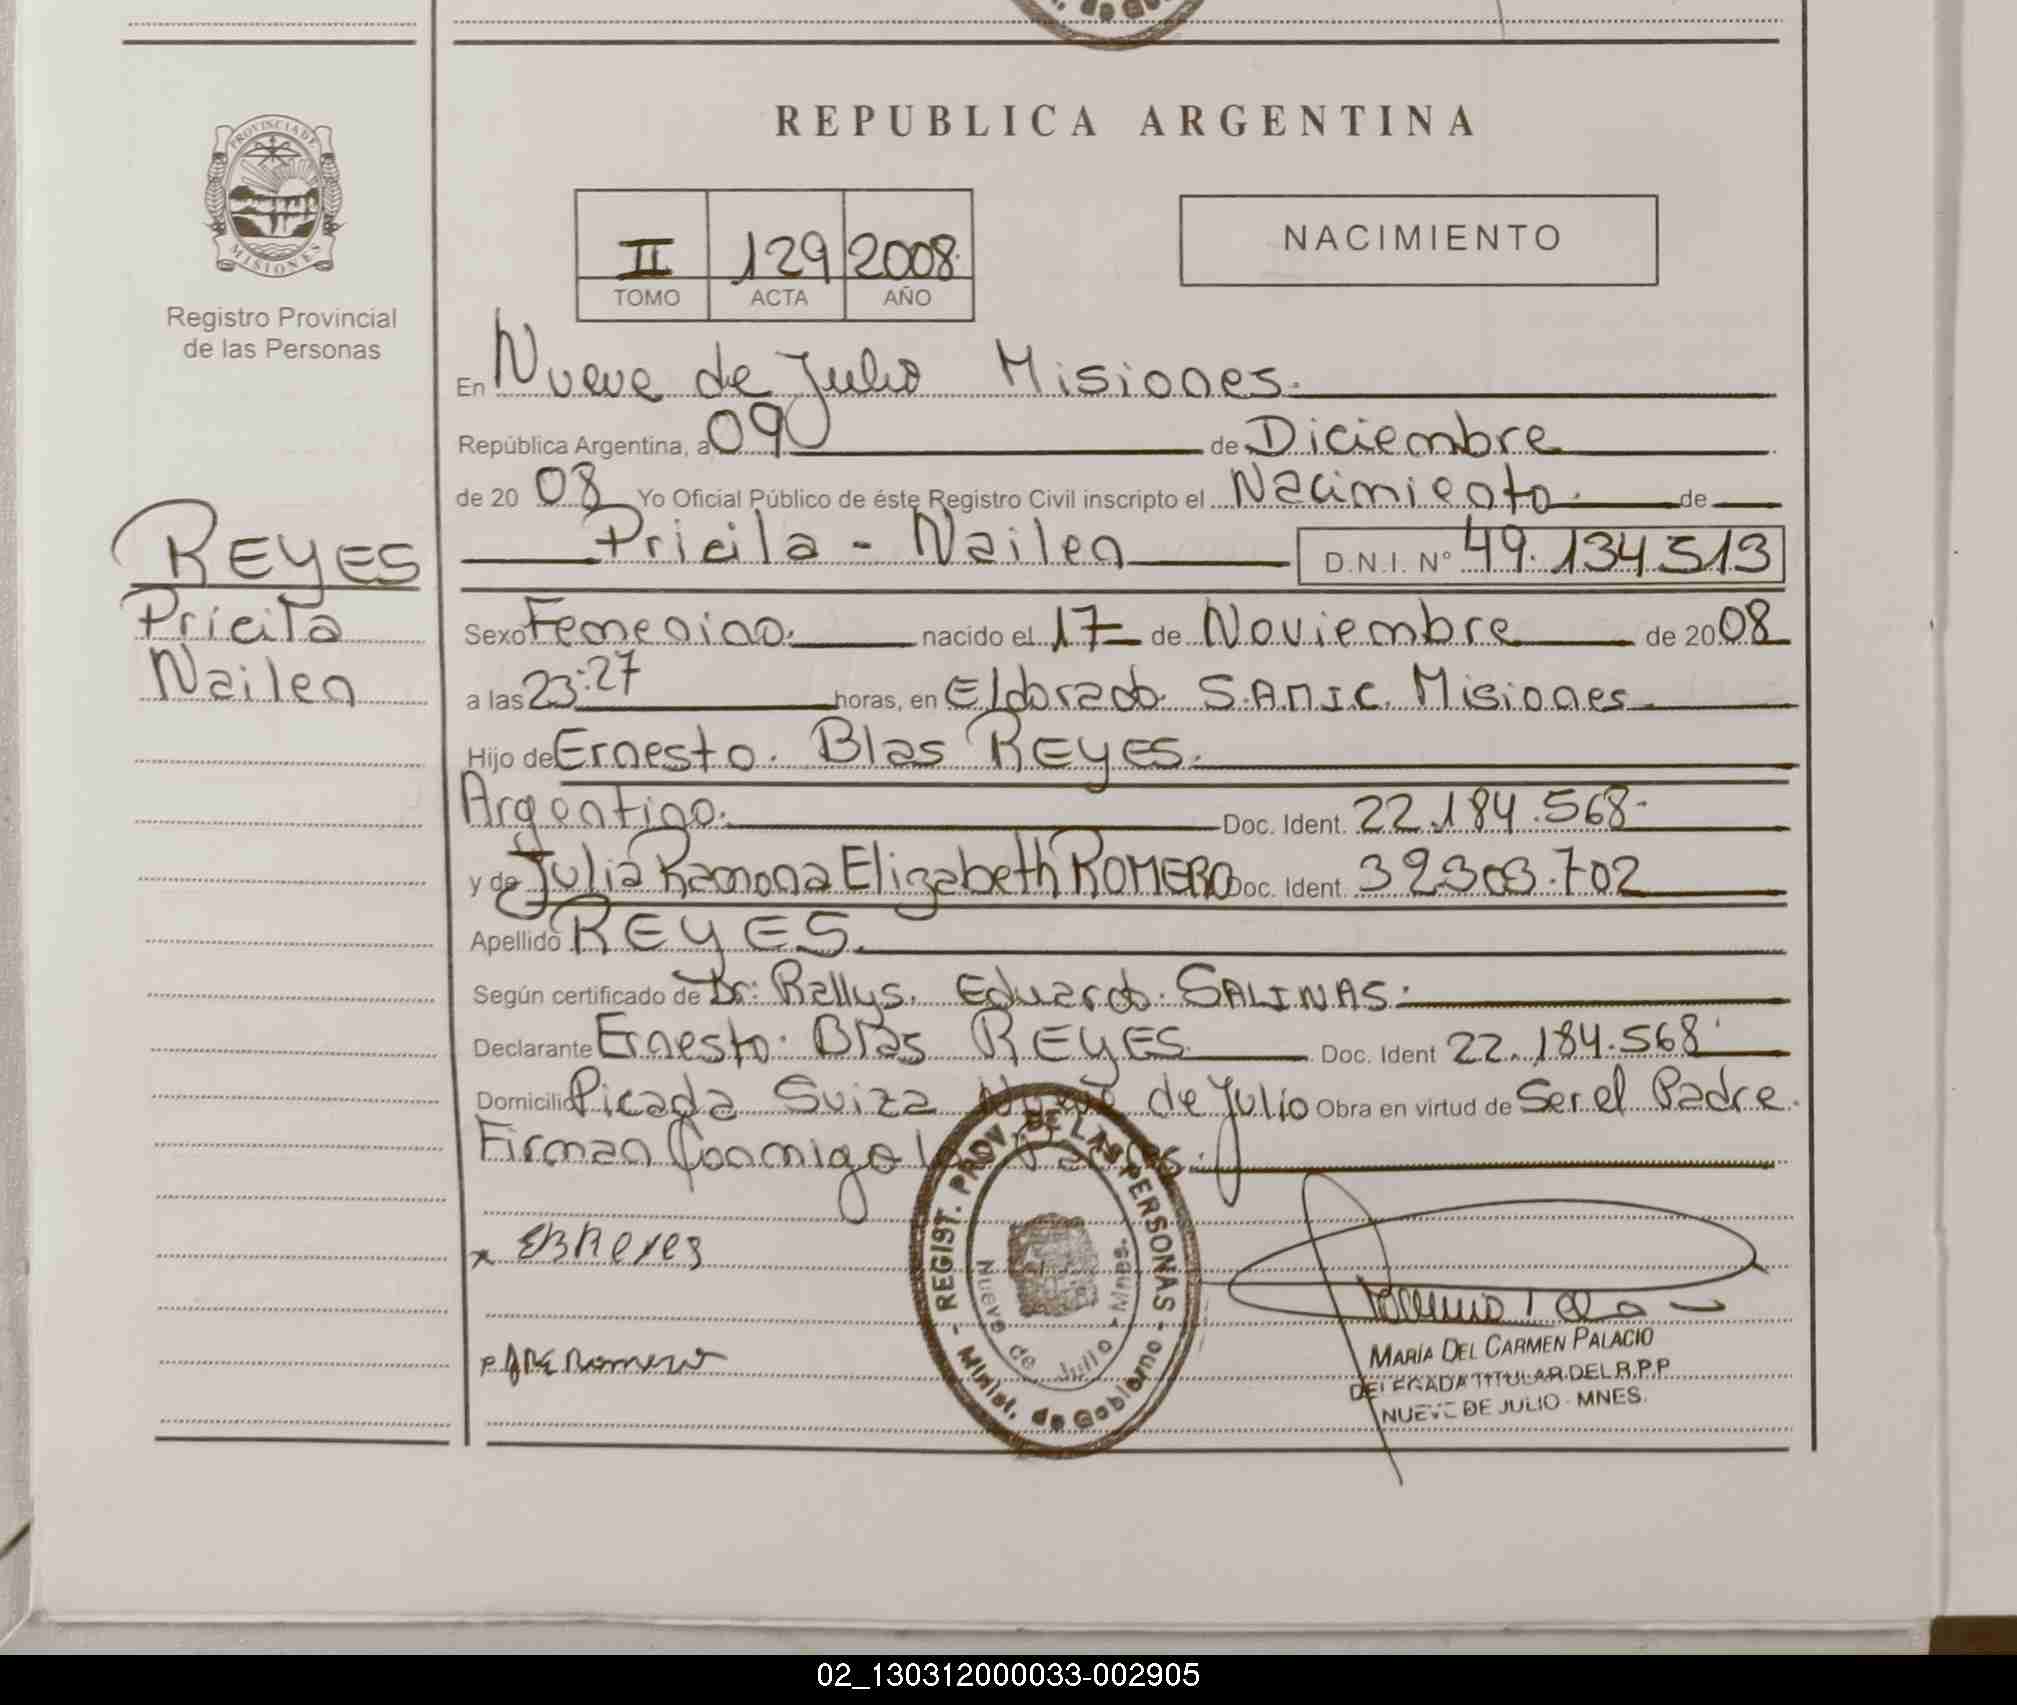 REPUBLICA ARGENTINA
PROVINCIA DE MISIONES
Registro Provincial
de las Personas
II 129 2008
TOMO ACTA AÑO
NACIMIENTO
En Nueve de Julio Misiones.
República Argentina, a 09 de Diciembre
de 20 08 Yo Oficial Público de éste Registro Civil inscripto el Nacimiento. de
Pricila - Nailen D.N.I. Nº 49.134513
REYES
Pricila
Nailen
Sexo Femenino. nacido el 17 de Noviembre de 2008
a las 23:27 horas, en Eldorado. S.AMIC. Misiones
Hijo de Ernesto. Blas REYES.
Argentino. Doc. Ident. 22.184.568
y de Julia Ramona Elizabeth ROMERO Doc. Ident. 39303.702
Apellido REYES.
Según certificado de Dr: Rallys. Eduardo. SALINAS.
Declarante Ernesto. Blas REYES Doc. Ident 22.184.568
Domicilio Picada Suiza Nueve de Julio Obra en virtud de Ser el Padre.
Firman Conmigo los
x EBReyes
Romero
REGIST. PROV. DE LAS PERSONAS
- Minist. de Gobierno -
Nueve de Julio - Mnes.
MARÍA DEL CARMEN PALACIO
DELEGADA TITULAR DEL R.P.P
NUEVE DE JULIO - MNES.
02_130312000033-002905